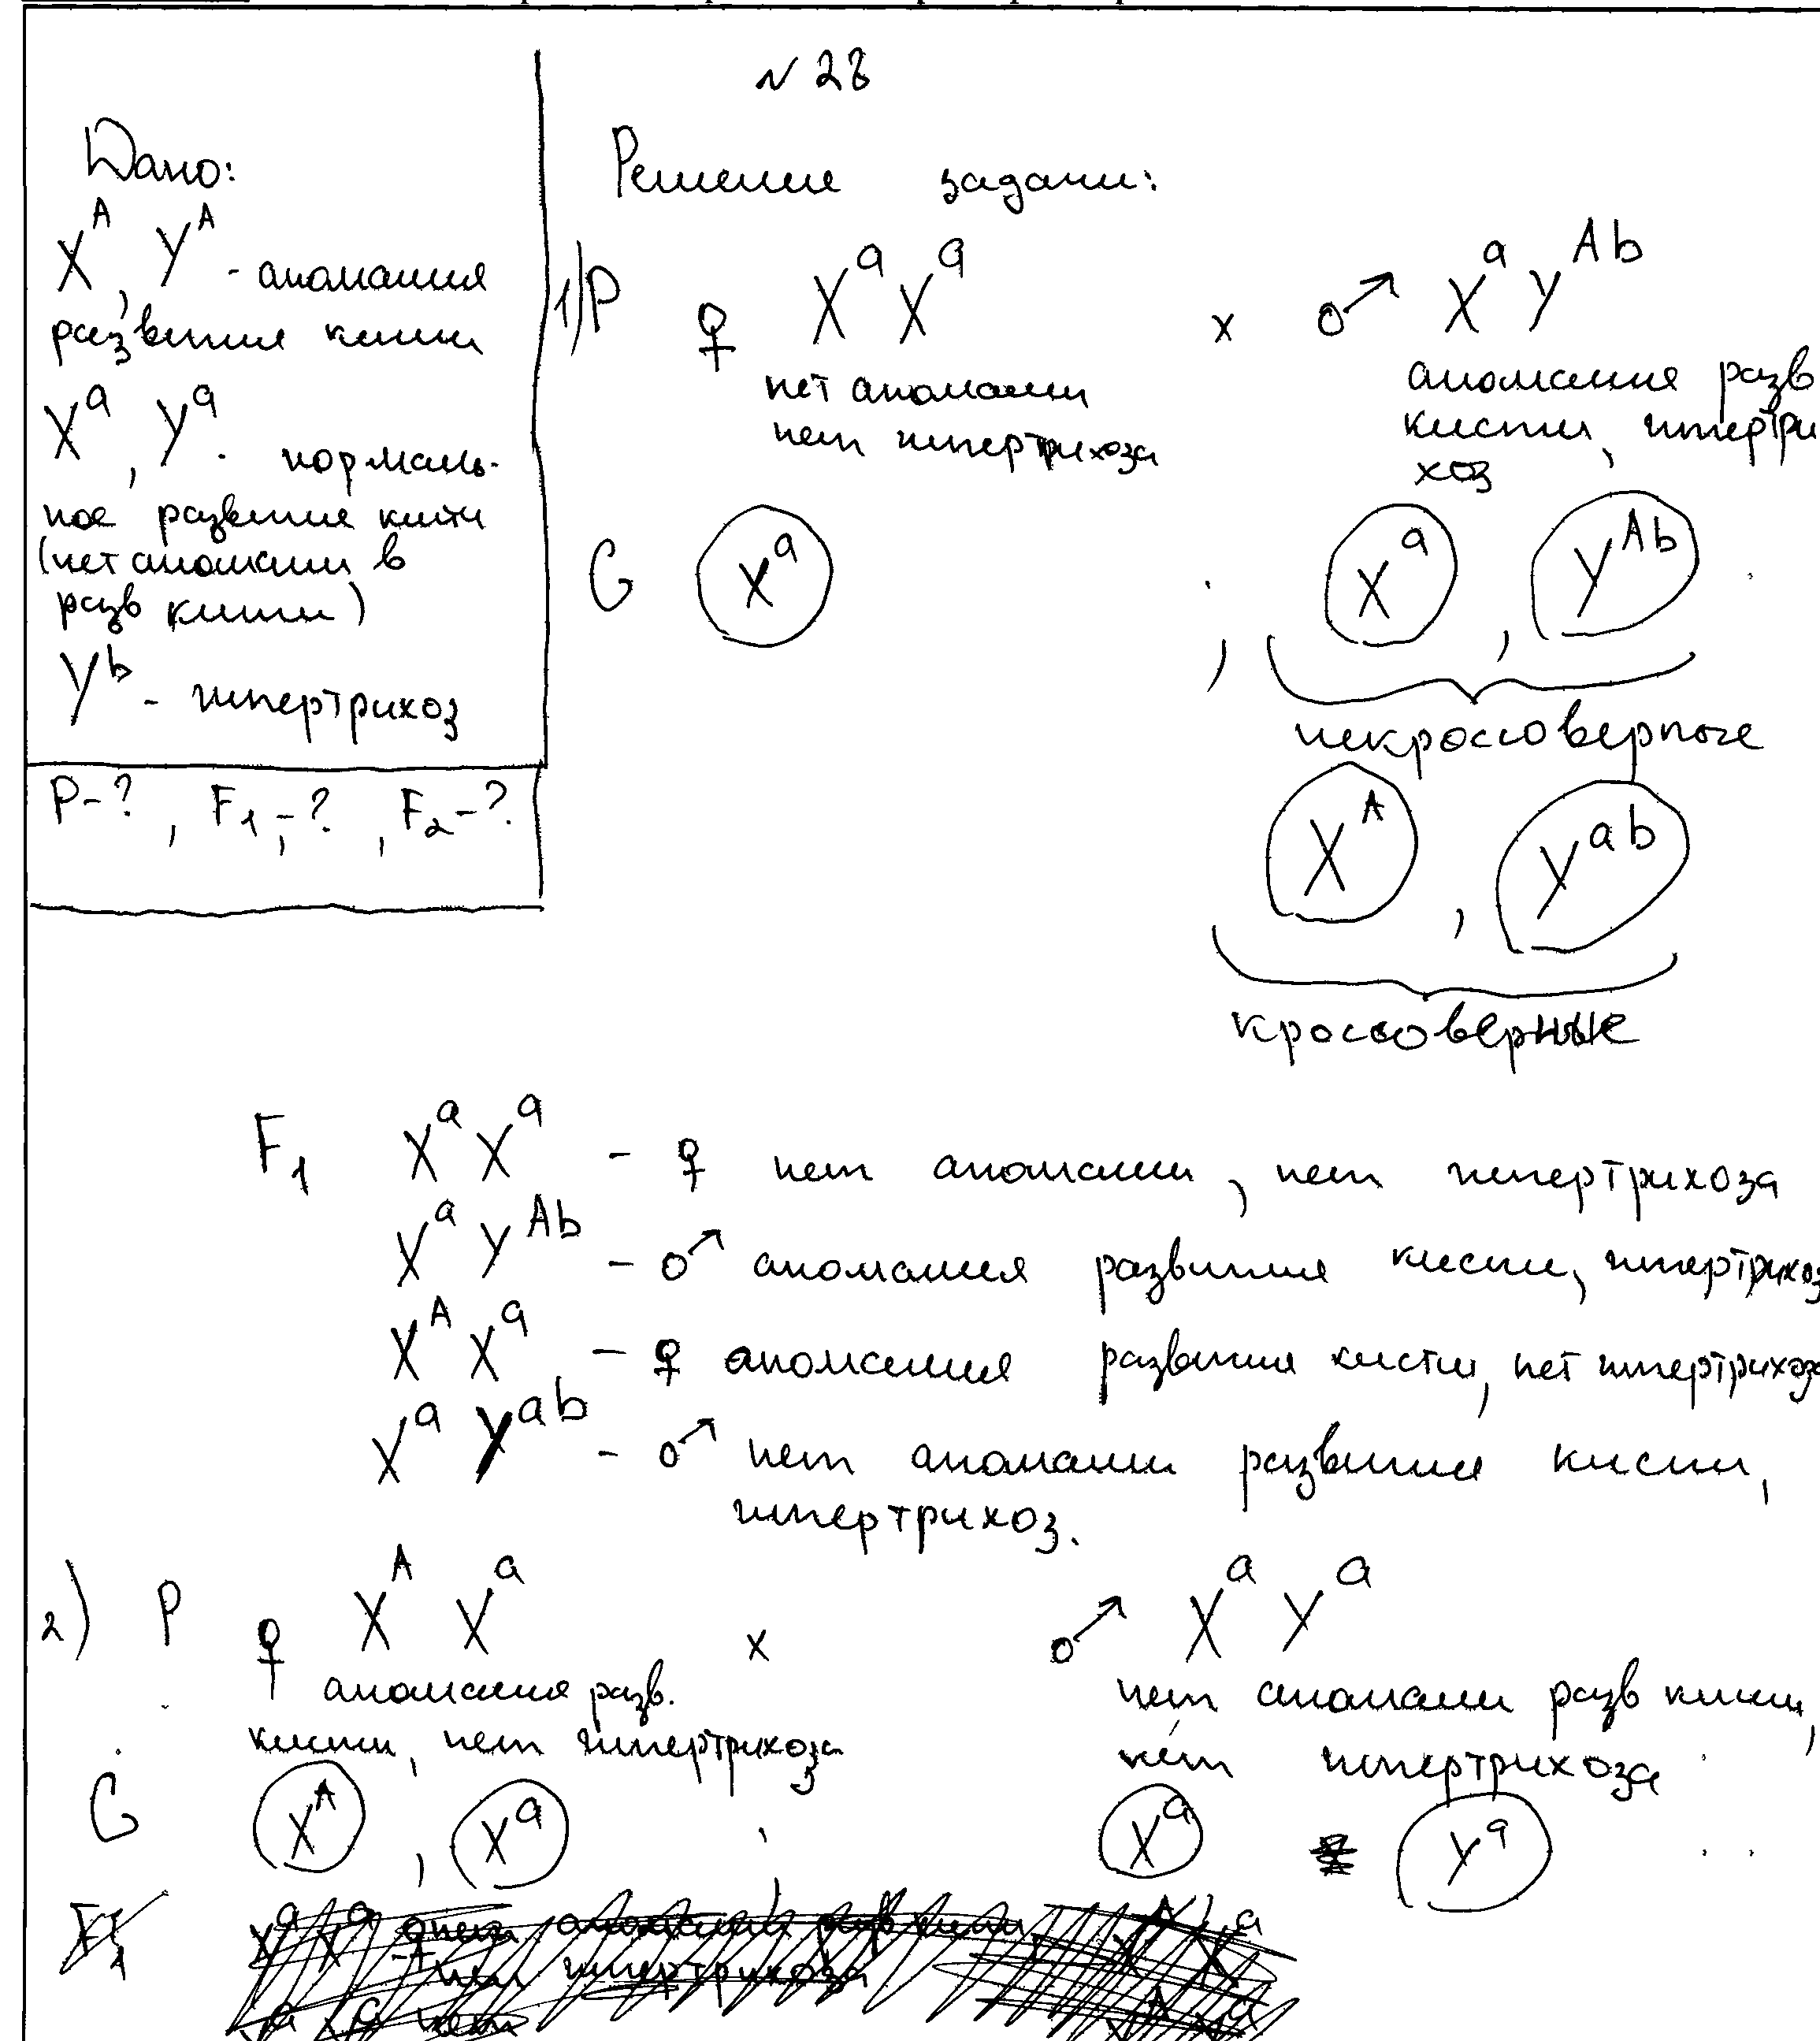 № 28
Дано:
X^A, Y^A - аномалия
развития кисти
X^a, Y^a - нормаль-
ное развитие кисти
(нет аномалии в
разв кисти)
Y^b - гипертрихоз
P-?, F₁-?, F₂-?
Решение задачи:
1) P ♀ X^a X^a x ♂ X^a Y^Ab
нет аномалии
нет гипертрихоза
аномалия разв
кисти, гипертри
хоз
G X^a ; X^a , Y^Ab
некроссоверные
X^A , Y^ab
кроссоверные
F₁ X^a X^a - ♀ нет аномалии, нет гипертрихоза
X^a Y^Ab - ♂ аномалия развития кисти, гипертрихоз
X^A X^a - ♀ аномалия развития кисти, нет гипертрихоза
X^a Y^ab - ♂ нет аномалии развития кисти,
гипертрихоз.
2) P ♀ X^A X^a x ♂ X^a Y^a
аномалия разв.
кисти, нет гипертрихоза
нет аномалии разв кисти,
нет гипертрихоза
G X^A , X^a ; X^a Y^a